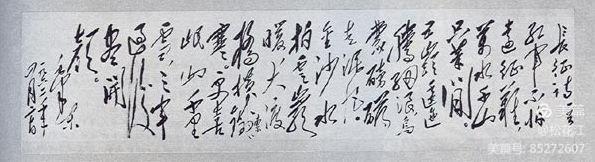 長征詩一首
紅軍不怕
遠征難
萬水千山
只等閒
五嶺逶迤
騰細浪烏
蒙磅礴
走泥丸
金沙水
拍雲崖
暖大渡
橋橫鐵索
寒更喜
岷山千里
雪三軍
過後
盡開
顏。
毛澤東
一九六二年
美篇
@松花江
美篇号:85272607